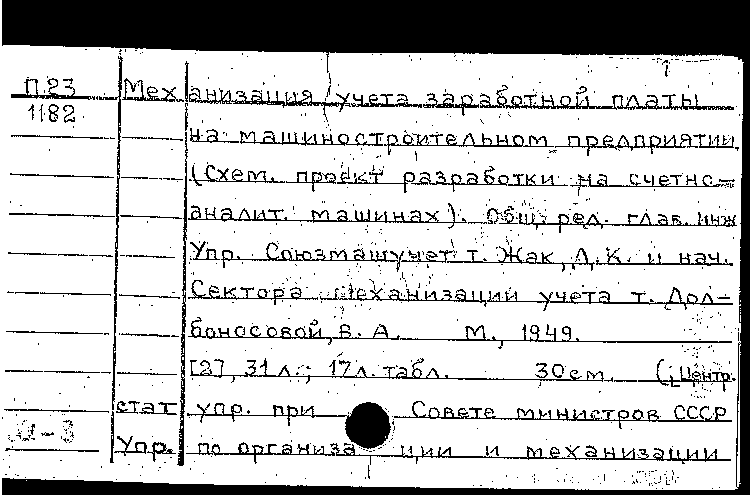 П.23 Механизация учета заработной платы
1182 на машиностроительном предприятии
(Схем. проект разработки на счетно-
аналит. машинах). Общ. ред. глав. инж
Упр. Союзмашучет т. Жак, Д.К. и нач.
Сектора механизации учета т. Дол-
боносовой, В. А. М., 1949.
[2], 31 л.; 17 л. табл. 30 см. (Центр.
стат упр. при Совете министров СССР
Упр. по организации и механизации